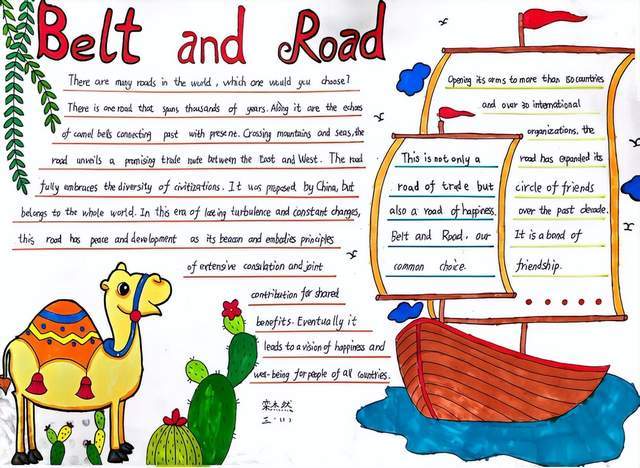 Belt and Road
There are many roads in the world, which one would you choose?
There is one road that spans thousands of years. Along it are the echoes
of camel bells connecting past with present. Crossing mountains and seas, the
road unveils a promising trade route between the East and West. The road
fully embraces the diversity of civilizations. It was proposed by China, but
belongs to the whole world. In this era of lasting turbulence and constant changes,
this road has peace and development as its beacon and embodies principles
of extensive consulation and joint
contribution for shared
benefits. Eventually it
leads to a vision of happiness and
well-being for people of all countries.
栾杰然
三.
This is not only a
road of trade but
also a road of happiness.
Belt and Road, our
common choice.
Opening its arms to more than 150 countries
and over 30 international
organizations, the
road has expanded its
circle of friends
over the past decade.
It is a bond of
friendship.